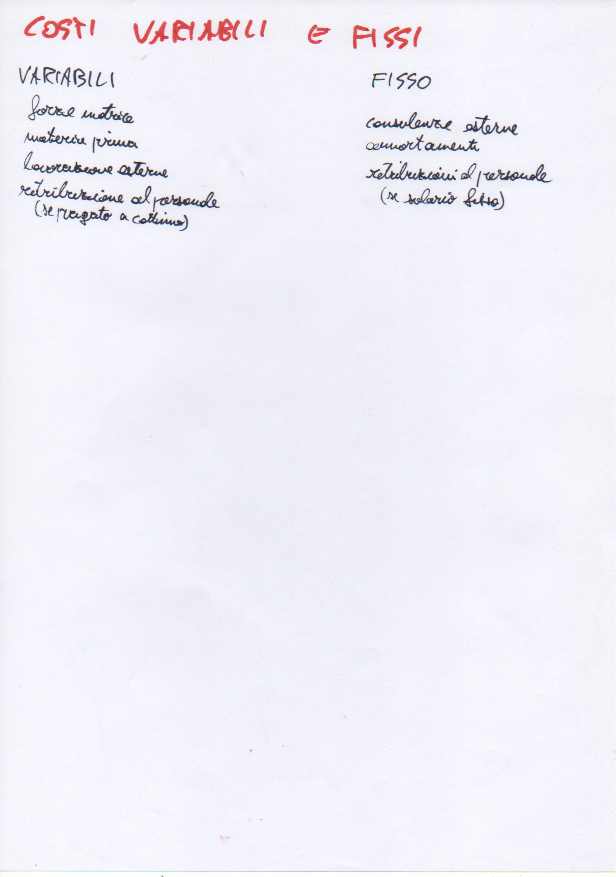 COSTI VARIABILI E FISSI
VARIABILI
forza motrice
materia prima
lavorazione esterne
retribuzione al personale
(se pagato a cottimo)
FISSO
consulenze esterne
ammortamenti
retribuzioni al personale
(se salario fisso)